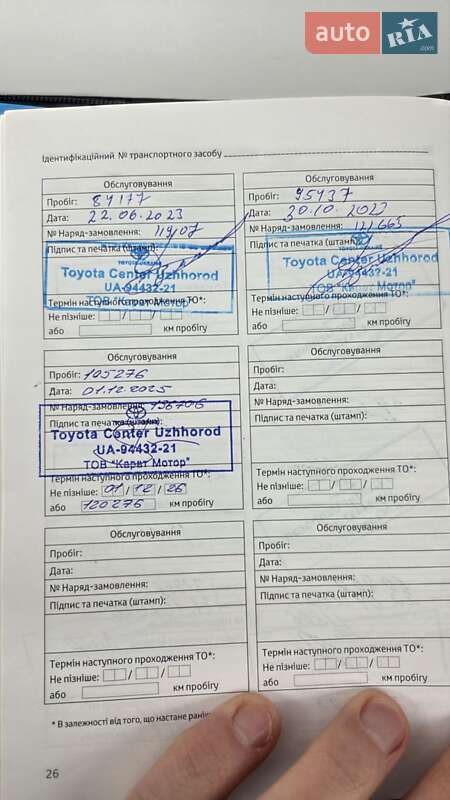 auto RIA .com
Ідентифікаційний № транспортного засобу
Обслуговування
Пробіг: 84177
Дата: 22.06.2023
№ Наряд-замовлення:
Підпис та печатка (штамп):
TOYOTA
Toyota Center Uzhhorod
UA-94432-21
ТОВ "Карат Мотор"
Термін наступного проходження ТО*:
Не пізніше: / /
або км пробігу
Обслуговування
Пробіг: 95437
Дата: 30.10.2023
№ Наряд-замовлення: 121665
Підпис та печатка (штамп):
Toyota Center Uzhhorod
UA-94432-21
ТОВ "Карат Мотор"
Термін наступного проходження ТО*:
Не пізніше: / /
або км пробігу
Обслуговування
Пробіг: 105276
Дата: 01.12.2025
№ Наряд-замовлення: 156706
Підпис та печатка (штамп):
Toyota Center Uzhhorod
UA-94432-21
ТОВ "Карат Мотор"
Термін наступного проходження ТО*:
Не пізніше: 01 / 12 / 26
або 120276 км пробігу
Обслуговування
Пробіг:
Дата:
№ Наряд-замовлення:
Підпис та печатка (штамп):
Термін наступного проходження ТО*:
Не пізніше: / /
або км пробігу
Обслуговування
Пробіг:
Дата:
№ Наряд-замовлення:
Підпис та печатка (штамп):
Термін наступного проходження ТО*:
Не пізніше: / /
або км пробігу
Обслуговування
Пробіг:
Дата:
№ Наряд-замовлення:
Підпис та печатка (штамп):
Термін наступного проходження ТО*:
Не пізніше: / /
або км пробігу
* В залежності від того, що настане
26